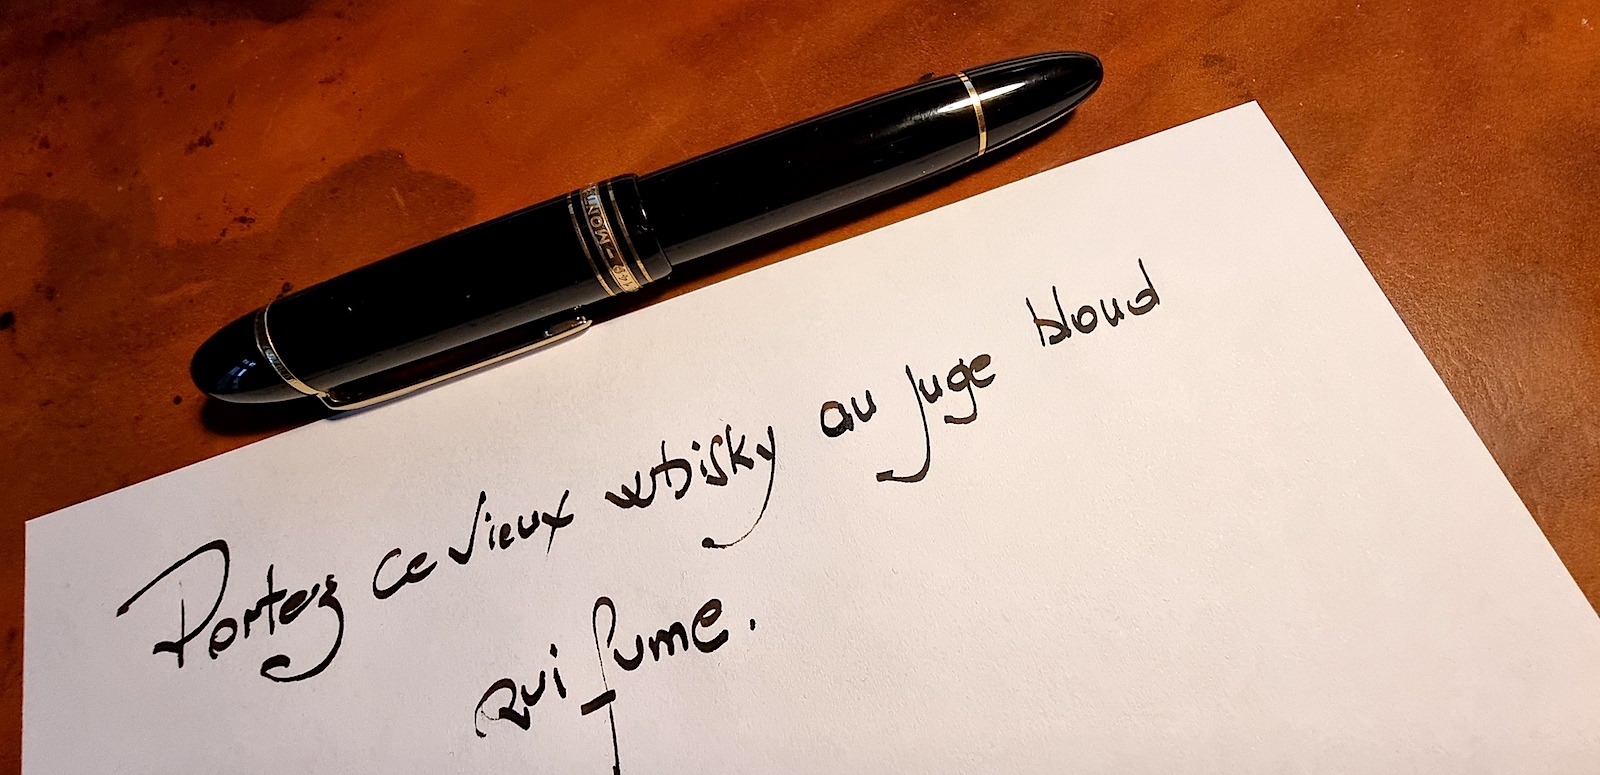 149 - MONT
Portez ce vieux whisky au juge blond
qui fume.